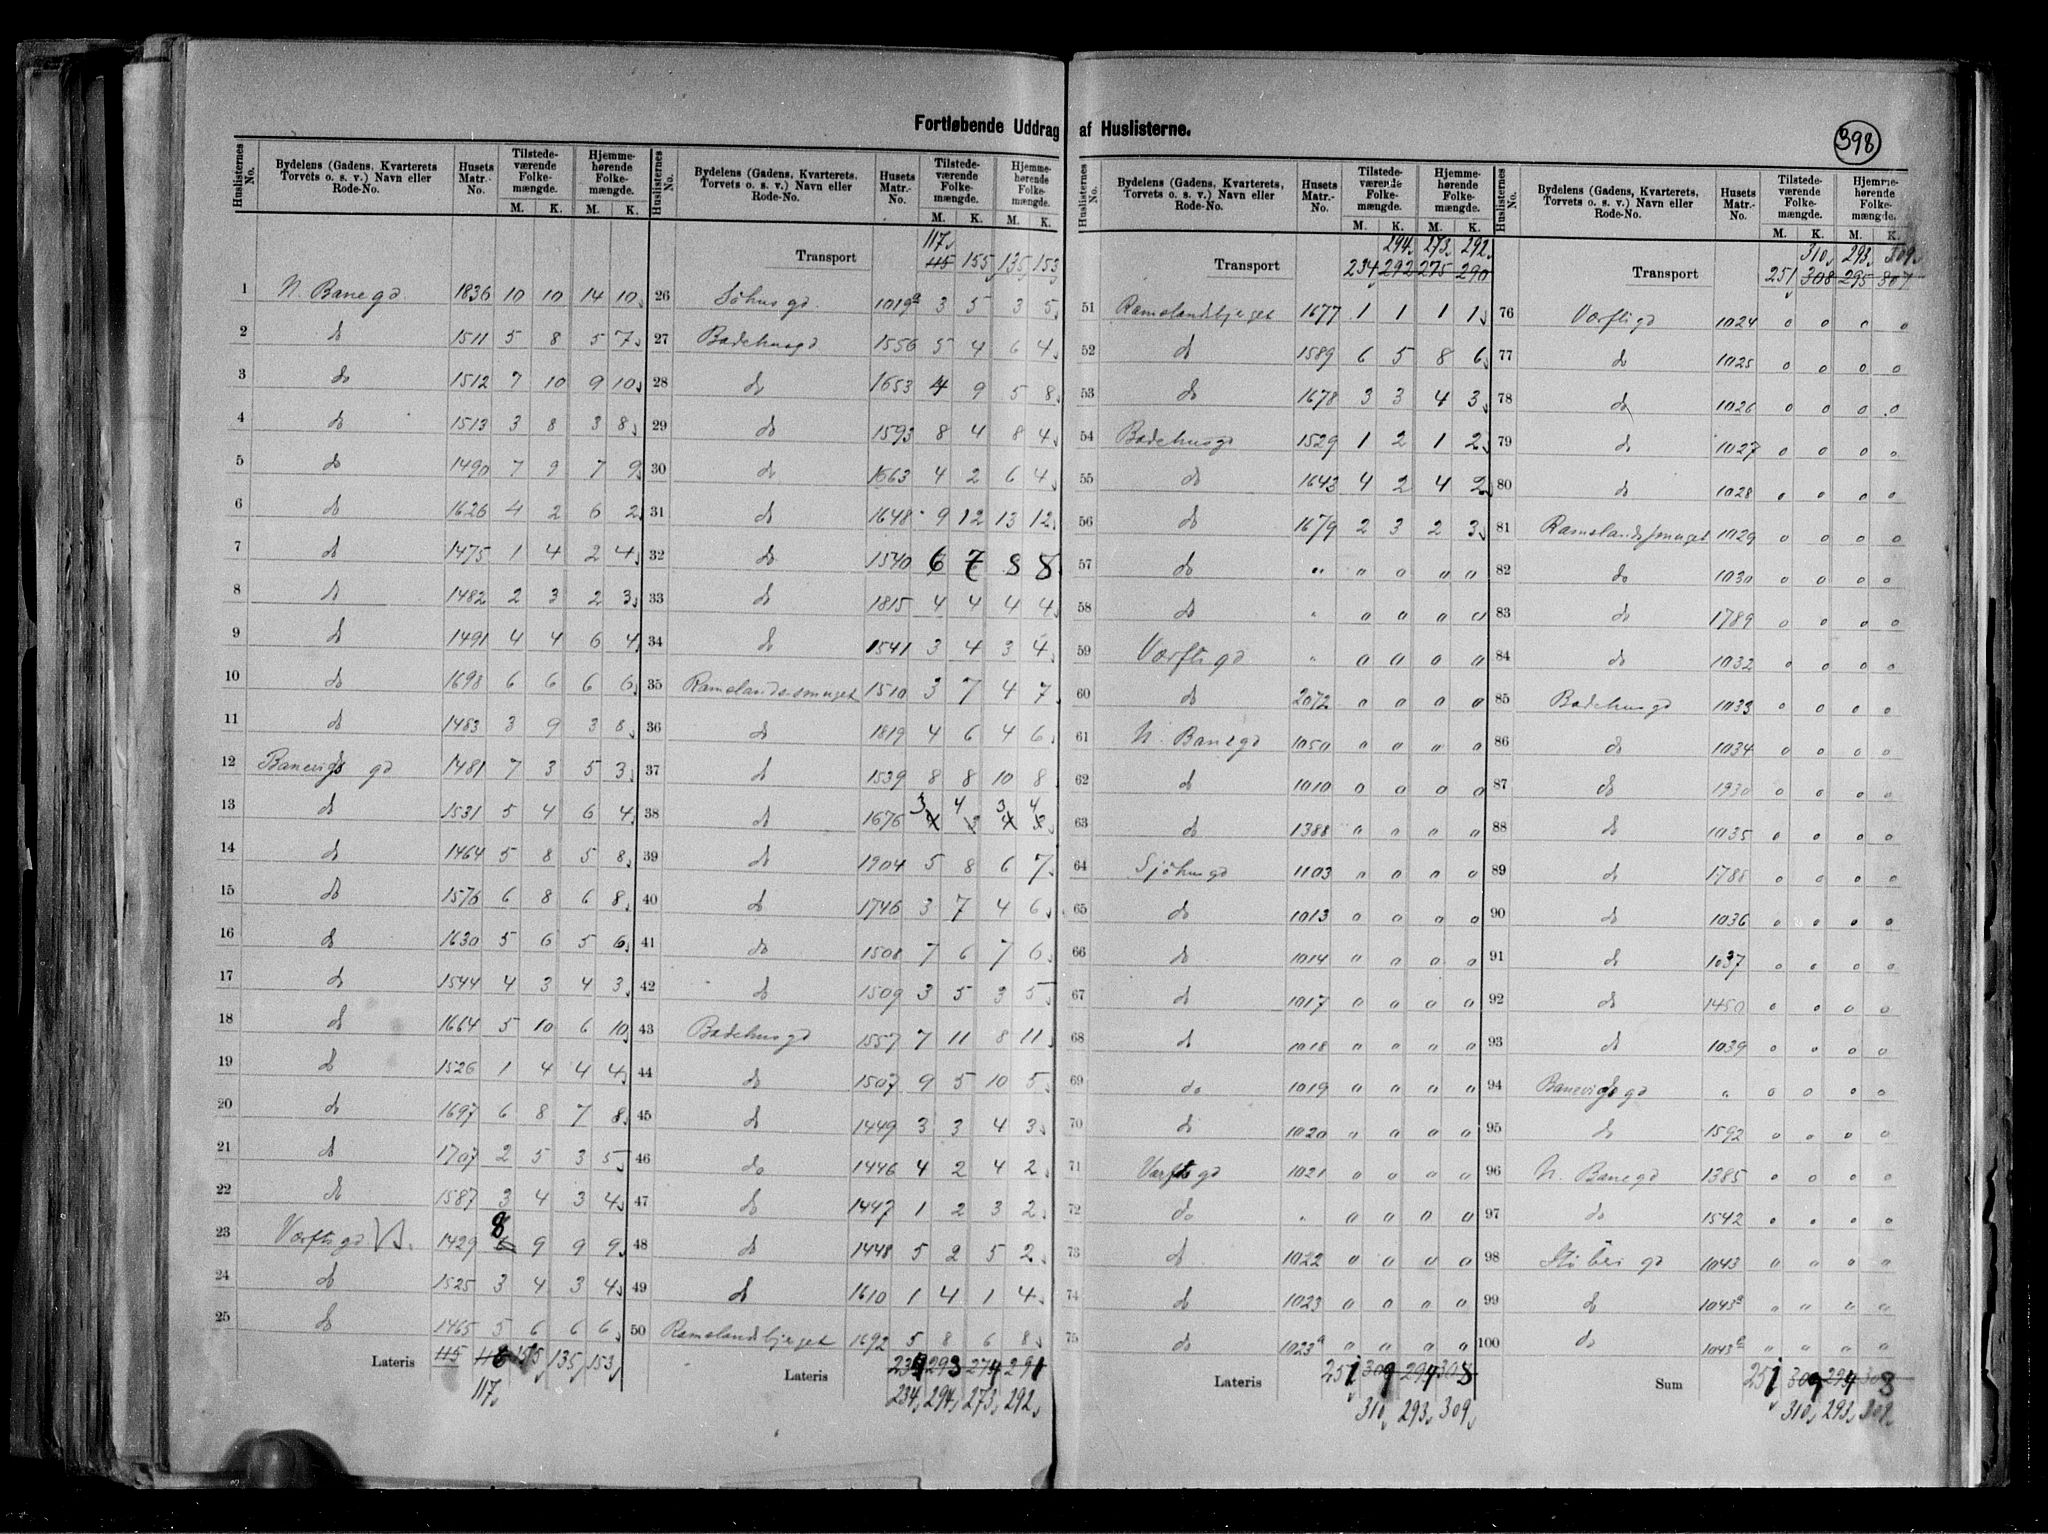 Fortløbende Uddrag af Huslisterne.
398
Huslisternes No. Bydelens (Gadens, Kvarterets Torvets o. s. v.) Navn eller Rode-No. Husets Matr.-No. Tilstedeværende Folkemængde. M. K. Hjemmehørende Folkemængde. M. K.
1 N. Banegd 1836 10 10 14 10
2 do 1511 5 8 5 7
3 do 1512 7 10 9 10
4 do 1513 3 8 3 8
5 do 1490 7 9 7 9
6 do 1626 4 2 6 2
7 do 1475 1 4 2 4
8 do 1482 2 3 2 3
9 do 1491 4 4 6 4
10 do 1698 6 6 6 6
11 do 1483 3 9 3 8
12 Banevigs gd 1481 7 3 5 3
13 do 1531 5 4 6 4
14 do 1464 5 8 5 8
15 do 1576 6 8 6 8
16 do 1630 5 6 5 6
17 do 1544 4 3 4 3
18 do 1664 5 10 6 10
19 do 1526 1 4 4 4
20 do 1697 6 8 7 8
21 do 1707 2 5 3 5
22 do 1587 3 4 3 4
23 Værftsgd 1429 8 9 9 9
24 do 1525 3 4 3 4
25 do 1465 5 6 6 6
Lateris 115 118 155 135 153
117
Huslisternes No. Bydelens (Gadens, Kvarterets, Torvets o. s. v.) Navn eller Rode-No. Husets Matr.-No. Tilstedeværende Folkemængde. M. K. Hjemmehørende Folkemængde. M. K.
117
Transport 115 155 135 153
26 Söhusgd. 1019a 3 5 3 5
27 Badehusgd 1556 5 4 6 4
28 do 1653 4 9 5 8
29 do 1593 8 4 8 4
30 do 1663 4 2 6 4
31 do 1648 9 12 13 12
32 do 1540 6 7 8 8
33 do 1815 4 4 4 4
34 do 1541 3 4 3 4
35 Ramslandssmuget 1510 3 7 4 7
36 do 1819 4 6 4 6
37 do 1539 8 8 10 8
3 4 3 4
38 do 1676 4 3 4 3
39 do 1904 5 8 6 7
40 do 1746 3 7 4 6
41 do 1508 7 6 7 6
42 do 1509 3 5 3 5
43 Badehusgd 1557 7 11 8 11
44 do 1507 9 5 10 5
45 do 1449 3 3 4 3
46 do 1446 4 2 4 2
47 do 1447 1 2 3 2
48 do 1448 5 2 5 2
49 do 1610 1 4 1 4
50 Ramslandsbjerget 1692 5 8 6 8
Lateris 293 274 291
234 294 273 292
Huslisternes No. Bydelens (Gadens, Kvarterets, Torvets o. s. v.) Navn eller Rode-No. Husets Matr.-No. Tilstedeværende Folkemængde. M. K. Hjemmehørende Folkemængde. M. K.
294 273 292
Transport 234 292 275 290
51 Ramslandsbjerget 1677 1 1 1 1
52 do 1589 6 5 8 6
53 do 1678 3 3 4 3
54 Badehusgd 1529 1 2 1 2
55 do 1643 4 2 4 2
56 do 1679 2 3 2 3
57 do " 0 0 0 0
58 do " 0 0 0 0
59 Værftsgd " 0 0 0 0
60 do 2072 0 0 0 0
61 N. Banegd 1050 0 0 0 0
62 do 1010 0 0 0 0
63 do 1388 0 0 0 0
64 Sjöhusgd 1103 0 0 0 0
65 do 1013 0 0 0 0
66 do 1014 0 0 0 0
67 do 1017 0 0 0 0
68 do 1018 0 0 0 0
69 do 1019 0 0 0 0
70 do 1020 0 0 0 0
71 Værftsgd 1021 0 0 0 0
72 do " 0 0 0 0
73 do 1022 0 0 0 0
74 do 1023 0 0 0 0
75 do 1023a 0 0 0 0
Lateris 251 309 294 308
310 293 309
Huslisternes No. Bydelens (Gadens, Kvarterets, Torvets o. s. v.) Navn eller Rode-No. Husets Matr.-No. Tilstedeværende Folkemængde. M. K. Hjemmehørende Folkemængde. M. K.
310 293 309
Transport 251 308 295 307
76 Værftsgd 1024 0 0 0 0
77 do 1025 0 0 0 0
78 do 1026 0 0 0 0
79 do 1027 0 0 0 0
80 do 1028 0 0 0 0
81 Ramslandssmuget 1029 0 0 0 0
82 do 1030 0 0 0 0
83 do 1789 0 0 0 0
84 do 1032 0 0 0 0
85 Badehusgd 1033 0 0 0 0
86 do 1034 0 0 0 0
87 do 1930 0 0 0 0
88 do 1035 0 0 0 0
89 do 1788 0 0 0 0
90 do 1036 0 0 0 0
91 do 1037 0 0 0 0
92 do 1450 0 0 0 0
93 do 1039 0 0 0 0
94 Banevigsgd " 0 0 0 0
95 do 1592 0 0 0 0
96 N. Banegd 1385 0 0 0 0
97 do 1542 0 0 0 0
98 Stöberigd 1043 0 0 0 0
99 do 1043a 0 0 0 0
100 do 1043b 0 0 0 0
Sum 251 309 294 308
310 293 309